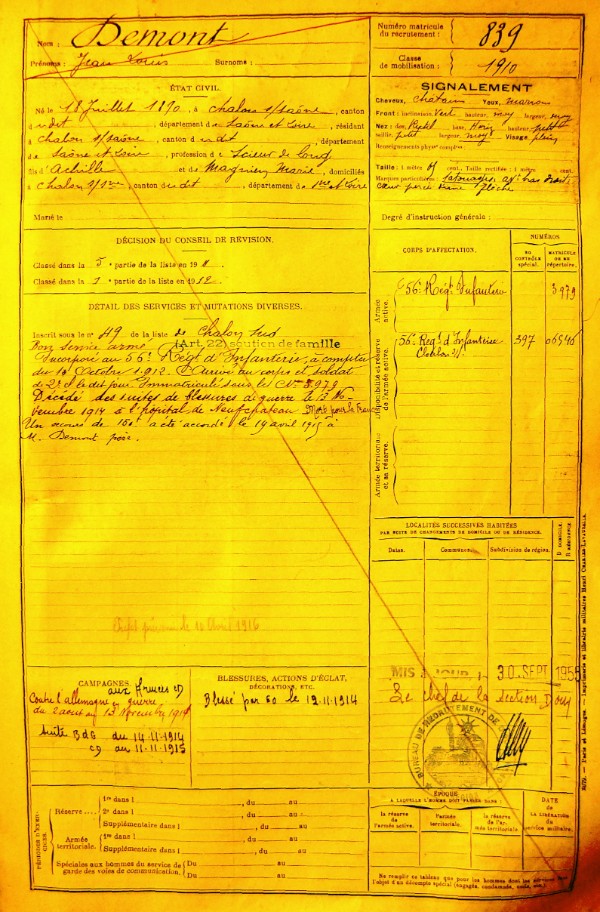 Nom : Demont
Prénoms : Jean Louis Surnome :
Numéro matricule du recrutement : 839
Classe de mobilisation : 1910
ÉTAT CIVIL.
Né le 18 Juillet 1890, à Chalon s/saône, canton
du dit, département de Saône et Loire, résidant
à Chalon s/saône, canton du dit, département
de Saône et Loire, profession de Scieur de Long
fils d'Achille et de Marie, domiciliés
à Chalon s/, canton du dit, département de et Loire
Marié le
SIGNALEMENT
Cheveux, Châtain Yeux, marron
Front : inclinaison, Vert hauteur, moy largeur, moy
Nez : dos, base, Horiz hauteur, petit
saillie, petit largeur, moy Visage, plein
Renseignements phys compl
Taille : 1 mètre cent. Taille rectifiée : 1 mètre cent.
Marques particulières : tatouages
Cœur percé d'une flèche
Degré d'instruction générale :
DÉCISION DU CONSEIL DE RÉVISION.
Classé dans la 5e partie de la liste en 1911
Classé dans la 1e partie de la liste en 1912
CORPS D'AFFECTATION.
NUMÉROS.
AU CONTRÔLE SPÉCIAL.
MATRICULE OU AU RÉPERTOIRE.
Armée active.
56e Régt Infanterie 3979
Disponibilité et réserve de l'armée active.
56e Régt d'Infanterie 397
Chalon s/S
Armée territoriale et sa réserve.
DÉTAIL DES SERVICES ET MUTATIONS DIVERSES.
Inscrit sous le no 49 de la liste de Chalon Sud
Bon service armé (Art. 22) soutien de famille
Incorporé au 56e Régt d'Infanterie, à compter
du 10 Octobre 1912. Arrivé au corps et soldat
de 2e cl le dit jour. Immatriculé sous le No 3979
Décédé des suites de blessures de guerre le 13 No-
vembre 1914 à l'hôpital de Neufchateau Mort pour la France
Un secours de 150f a été accordé le 19 avril 1915 à
M. Demont père.
LOCALITÉS SUCCESSIVES HABITÉES
PAR SUITE DE CHANGEMENTS DE DOMICILE OU DE RÉSIDENCE.
Dates. Communes. Subdivision de région. D domicile. R résidence.
1916
CAMPAGNES.
aux Armées
Contre l'allemagne en guerre
du 2 aout au 13 Novembre 1914
du 14-11-1914
au 11-11-1915
BLESSURES, ACTIONS D'ÉCLAT, DÉCORATIONS, ETC.
Blessé par EO le 12.11.1914
MIS A JOUR 30 SEPT 195
Le chef de la section
BUREAU DE RECRUTEMENT DE
PÉRIODES D'EXERCICES.
Réserve
1re dans l , du au
2e dans l , du au
Supplémentaire dans l , du au
Armée territoriale.
1re dans l , du au
Supplémentaire dans l , du au
Spéciales aux hommes du service de garde des voies de communication.
Du au
Du au
ÉPOQUE
A LAQUELLE L'HOMME DOIT PASSER DANS :
la réserve de l'armée active.
l'armée territoriale.
la réserve de l'armée territoriale.
DATE DE LA LIBÉRATION du service militaire.
Ne remplir ce tableau que pour les hommes dont les services font
l'objet d'un décompte spécial (engagés, condamnés, omis, etc.)
Paris et Limoges. — Imprimerie et librairie militaires Henri CHARLES-LAVAUZELLE.